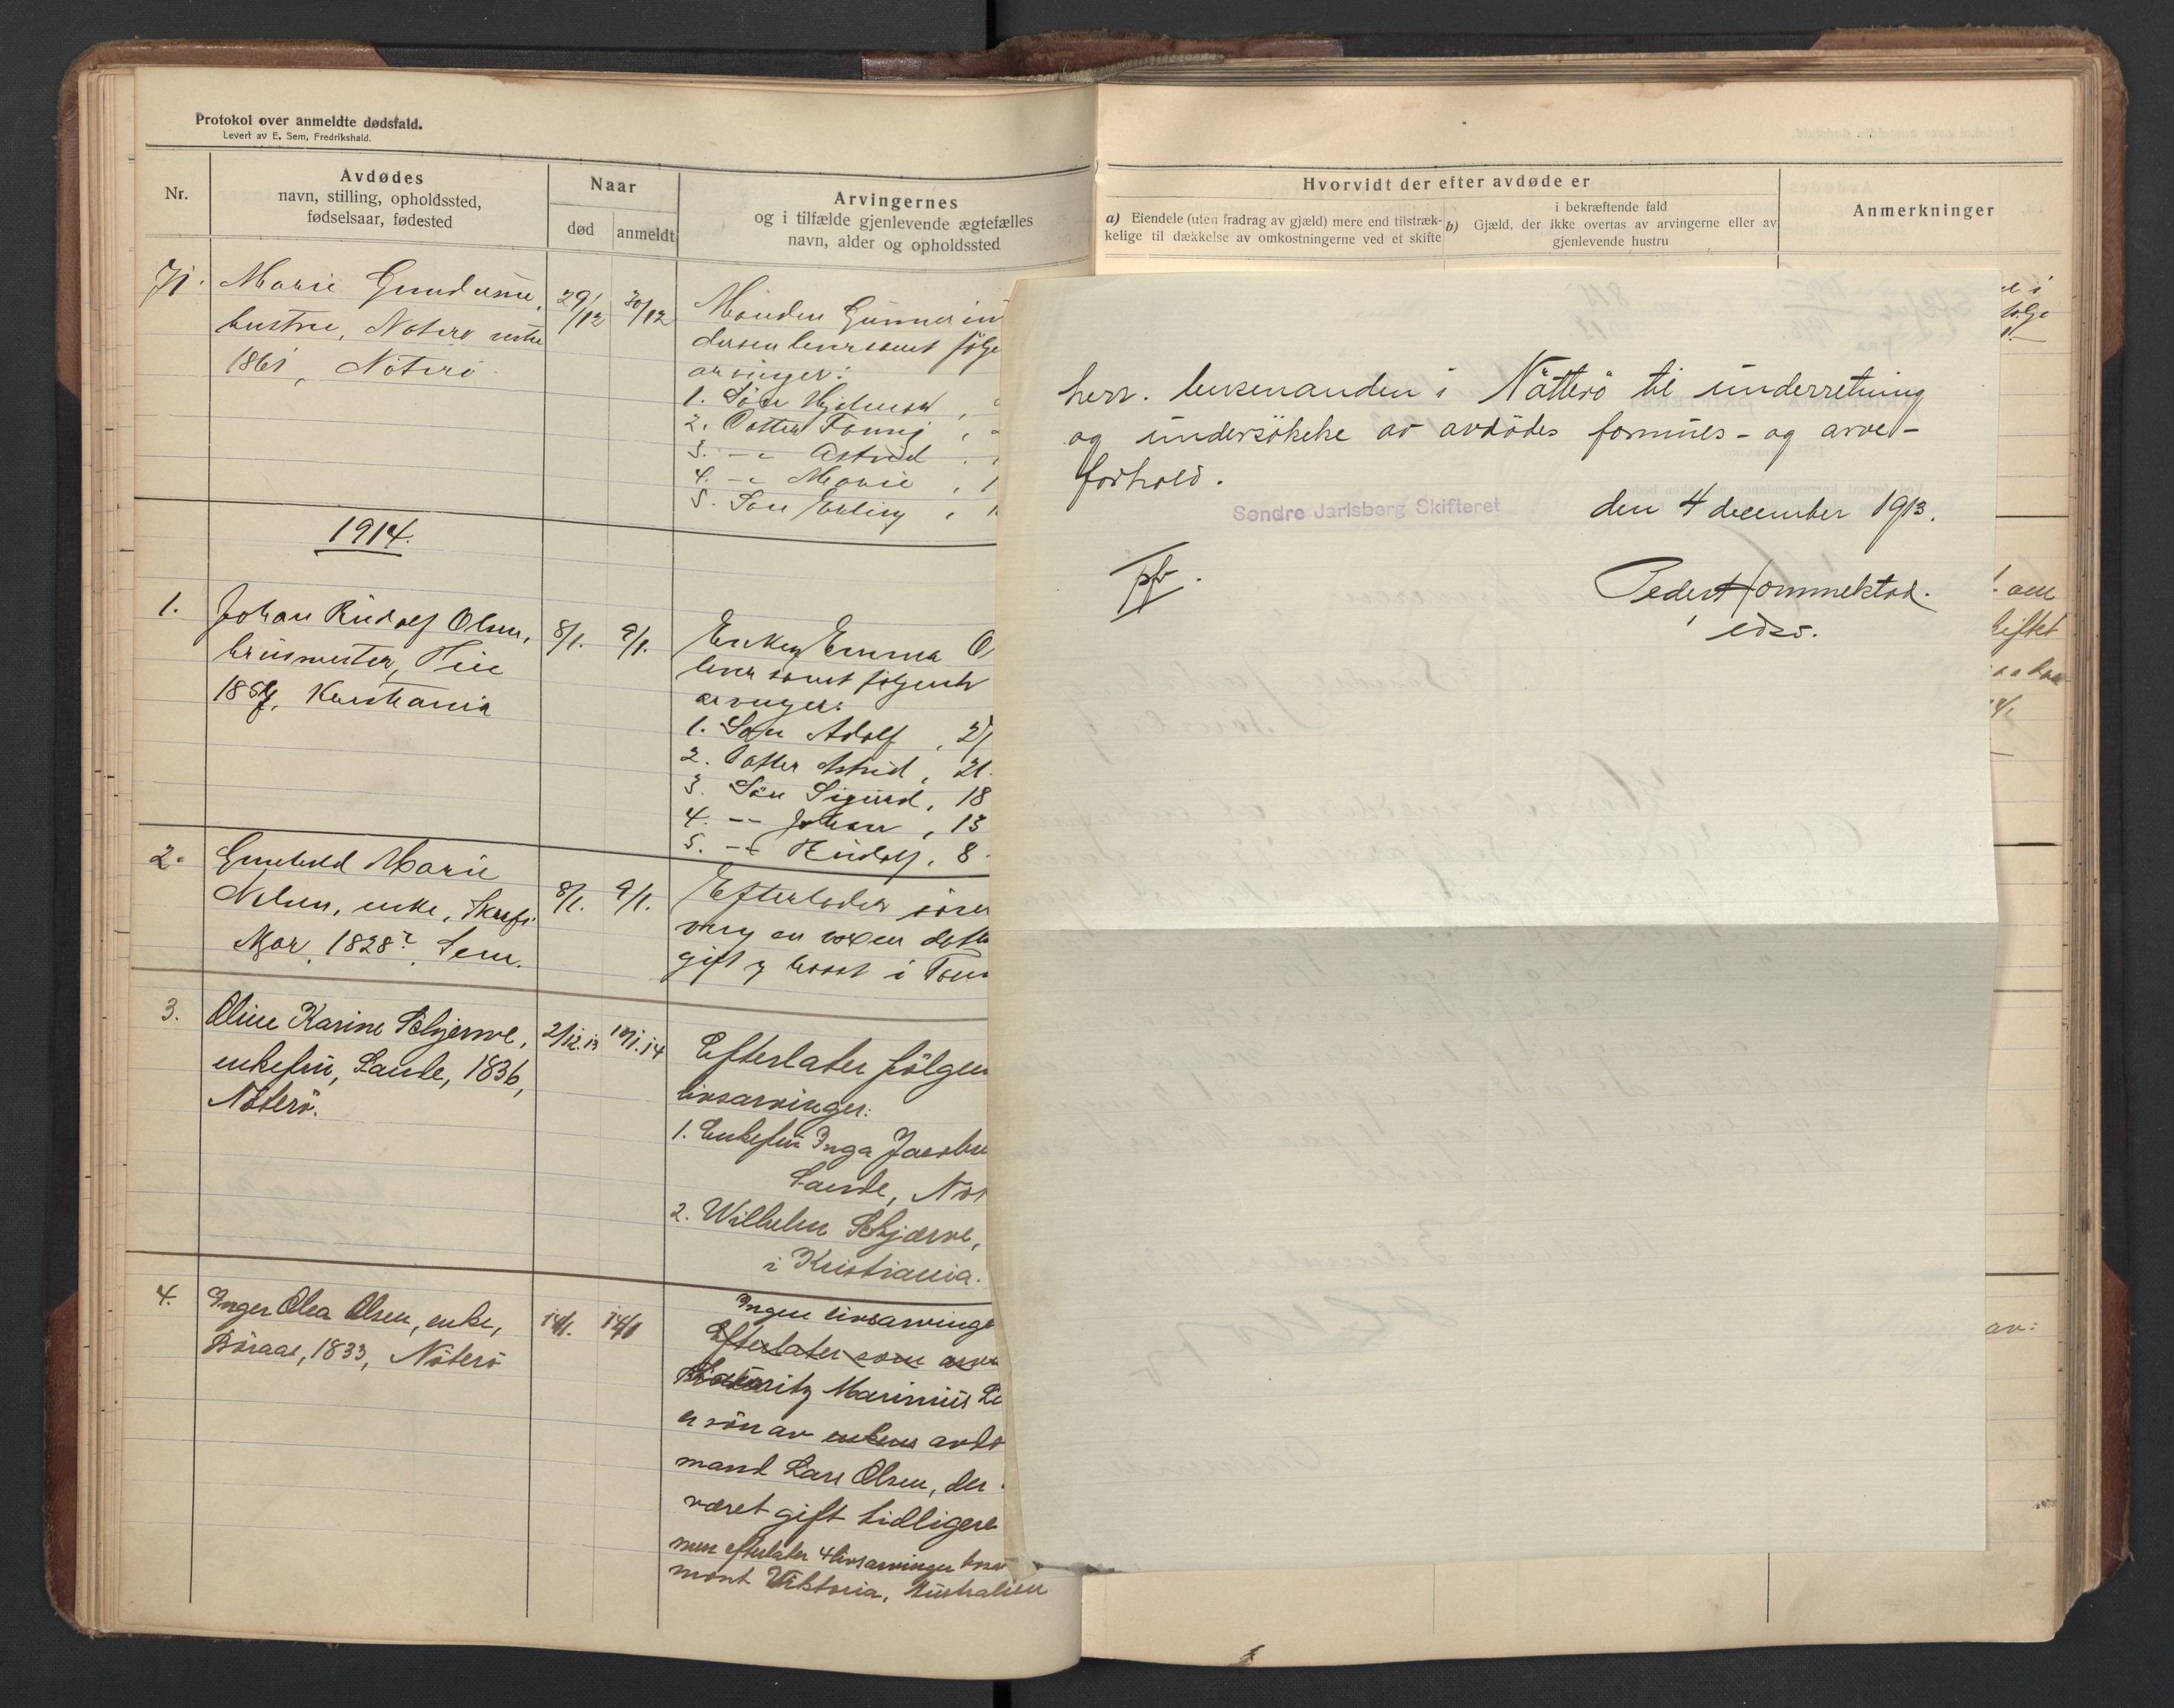 Protokol over anmeldte dødsfald.
Levert av E. Sem, Fredrikshald.
Nr.
Avdødes
navn, stilling, opholdssted,
fødselsaar, fødested
Naar
død
anmeldt
Arvingernes
og i tilfælde gjenlevende ægtefælles
navn, alder og opholdssted
71.
Marie Gundersen,
hustru, Noterø
1861, Nøterø
29/12
30/12
Manden Gunner
dersen lever samt følge
arvinger:
1. Søn Hjalmar,
2. Datter Fanny,
3. -"- Astrid,
4. -"- Marie,
5. Søn Erling,
1914.
1.
Johan Rudolf Olsen,
Tie
Kristiania
8/1.
9/1.
Enken Emma O
lever samt følgende
arvinger:
1. Søn Adolf, 27
2. Datter Astrid, 21
3. Søn Sigurd, 18
4. -"- Johan, 13
5. -"- Rudolf, 8
2.
Gunhild Marie
Nilsen, enke,
1828?, Sem.
8/1.
9/1.
Efterlader
en voxen datte
gift og bosat i
3.
Oline Karine Skjerve,
enkefru, Sande, 1836,
Nøterø.
2/12.13
10/1.14
Efterlater følgen
livsarvinger:
1. Enkefru Inga Jacobse
Sande, Nø
2. Wilhelm Skjærve,
i Kristiania.
4.
Inger Olea Olsen, enke,
Böraas, 1833, Nøterö
14/1.
14/1
Ingen livsarvinge
Efterlater som arv
Marinius
er søn av enkens avdø
mand Lars Olsen, der
været gift tidligere
men efterlater 4 livsarvinger
mont Viktoria, Australien
Hvorvidt der efter avdøde er
a) Eiendele (uten fradrag av gjæld) mere end tilstræk-
kelige til dækkelse av omkostningerne ved et skifte
i bekræftende fald
b) Gjæld, der ikke overtas av arvingerne eller av
gjenlevende hustru
Anmerkninger
herr. lensmanden i Nötterö til underretning
og undersökelse av avdödes formues- og arve-
forhold.
Søndre Jarlsberg Skifteret
den 4 december 1913.
Peder Hommelstad.
edsv.